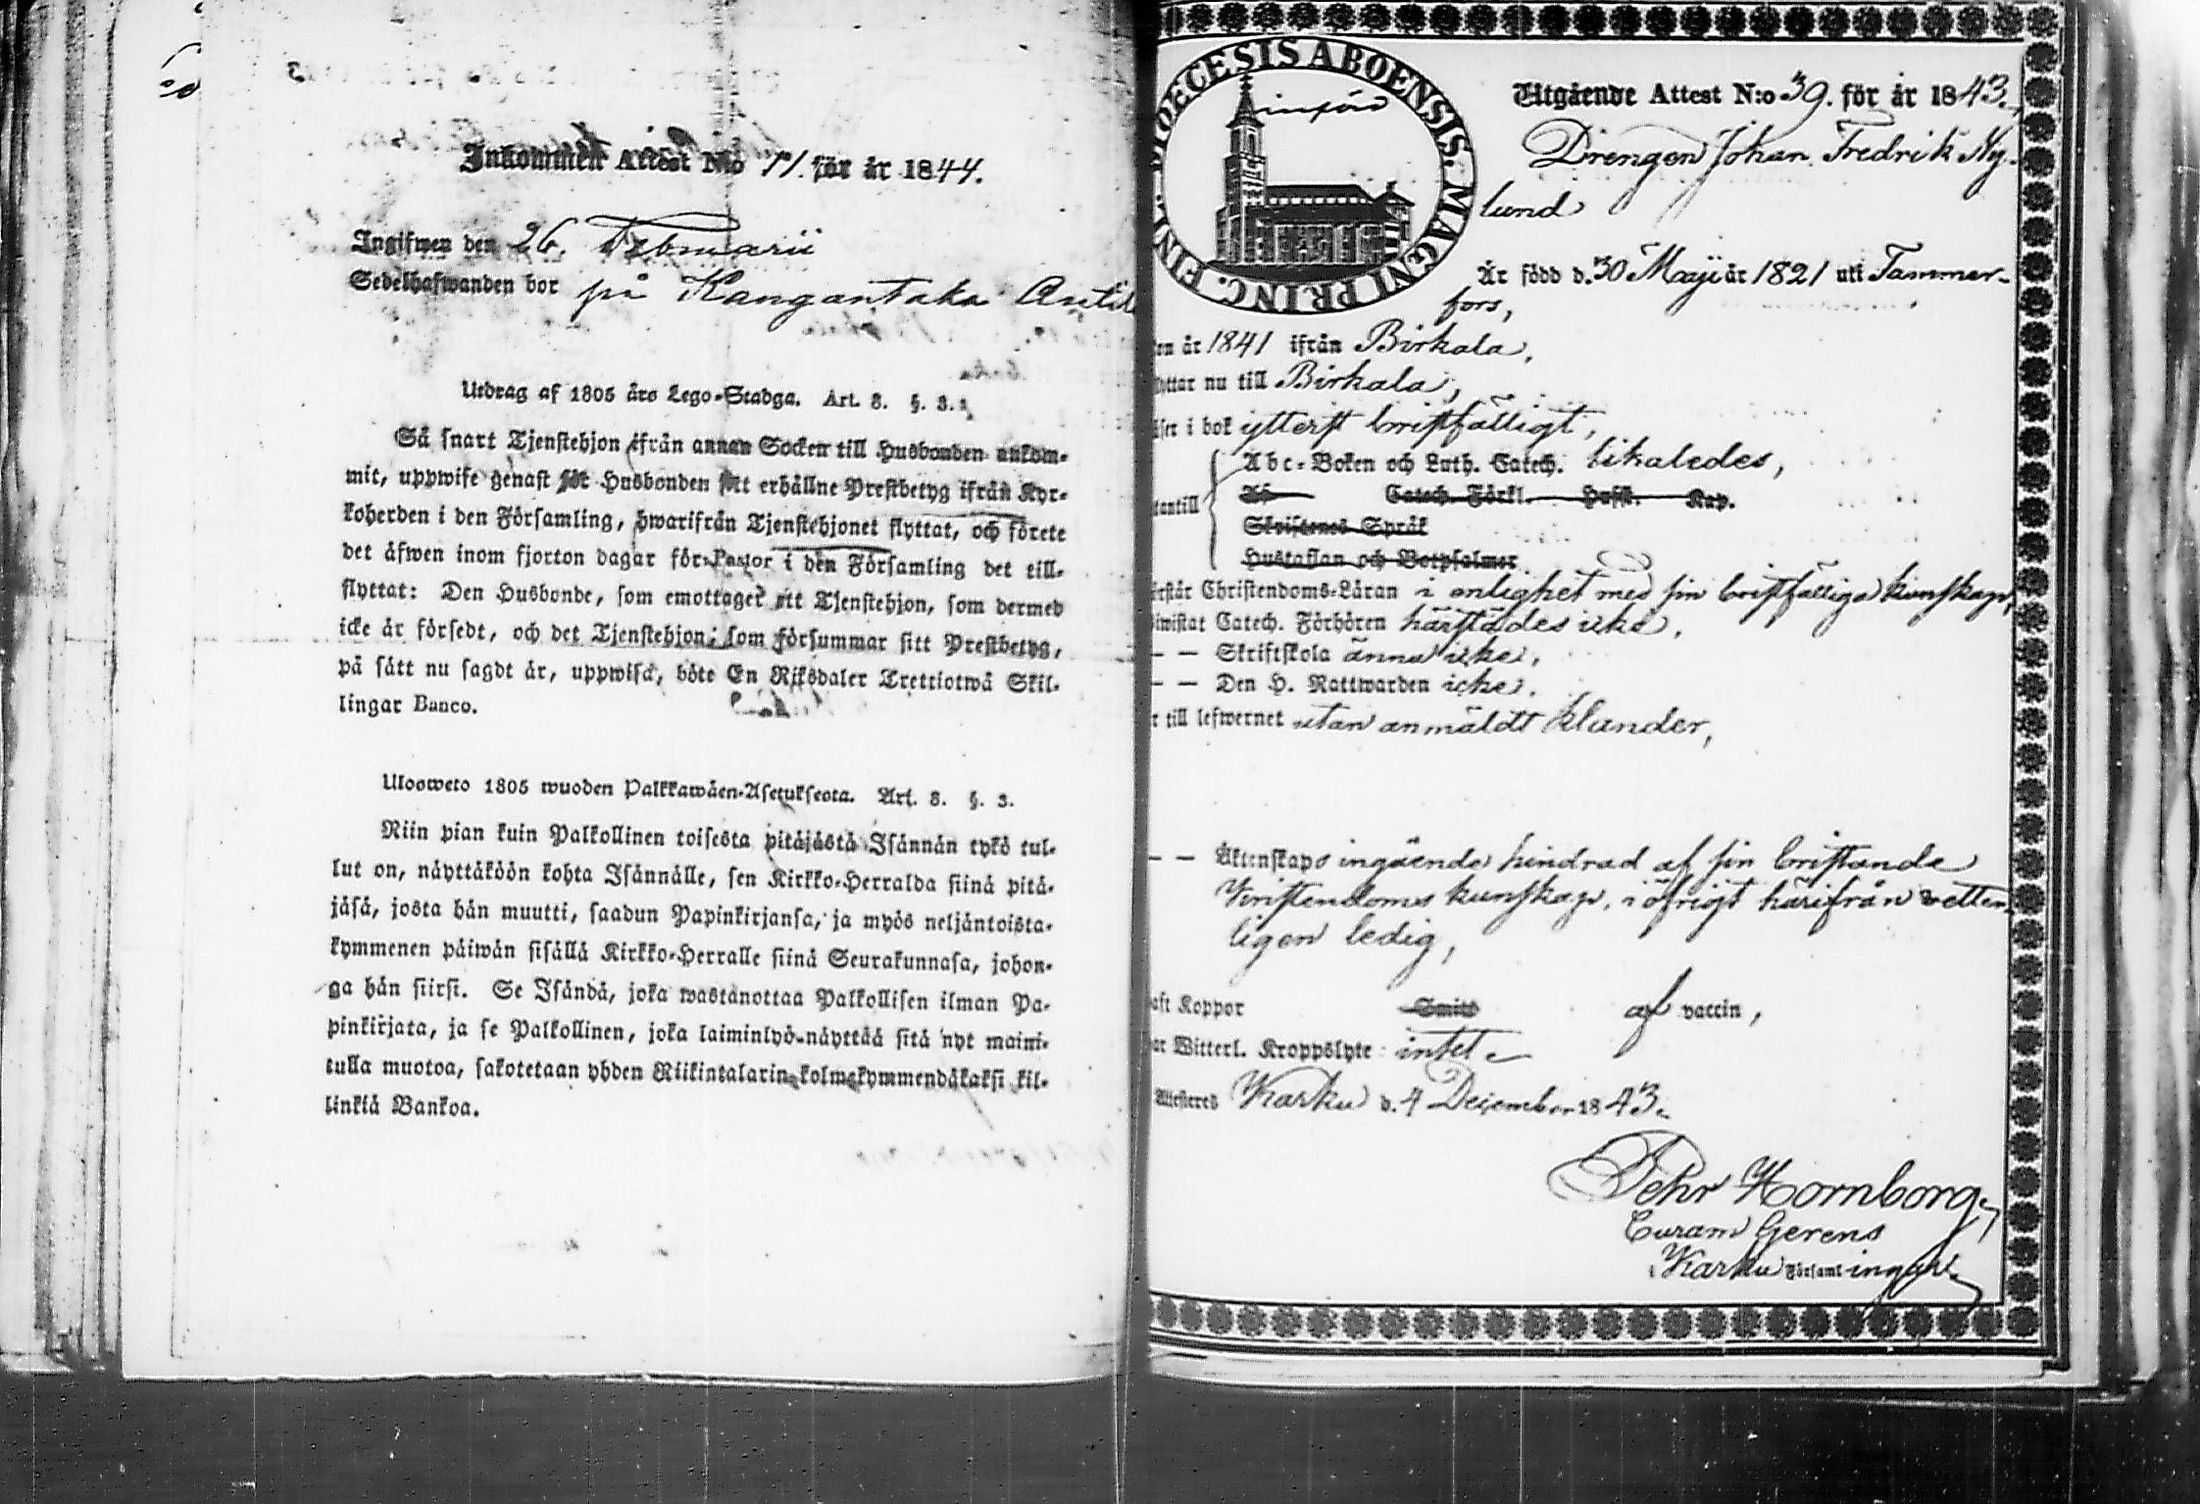 Inkommen Attest N:o 11. för år 1844.
Ingifwen den 26. Februarii
Sedelhafwanden bor på Kangantaka
Utdrag af 1805 års Lego-Stadga. Art. 8. §. 3.
Så snart Tjenstehjon ifrån annan Socken till Husbonden ankom-
mit, uppwise genast för Husbonden sitt erhållne Prestbetyg ifrån Kyr-
koherden i den Församling, hwarifrån Tjenstehjonet flyttat, och förete
det äfwen inom fjorton dagar för Pastor i den Församling det till-
flyttat: Den Husbonde, som emottager ett Tjenstehjon, som dermed
icke är försedt, och det Tjenstehjon, som försummar sitt Prestbetyg,
på sätt nu sagdt är, uppwisa, böte En Riksdaler Trettiotwå Skil-
lingar Banco.
Ulosweto 1805 wuoden Palkkawäen-Asetuksesta. Art. 8. §. 3.
Niin pian kuin Palkollinen toisesta pitäjästä Isännän tykö tul-
lut on, näyttäköön kohta Isännälle, sen Kirkko-Herralda siinä pitä-
jäsä, josta hän muutti, saadun Papinkirjansa, ja myös neljäntoista-
kymmenen päiwän sisällä Kirkko-Herralle siinä Seurakunnasa, johon-
ga hän siirsi. Se Isändä, joka wastanottaa Palkollisen ilman Pa-
pinkirjata, ja se Palkollinen, joka laiminlyö näyttää sitä nyt maini-
tulla muotoa, sakotetaan yhden Riikintalarin kolmekymmendäkaksi kil-
linkiä Bankoa.
DIOECESIS ABOENSIS. MAGNI PRINC. FINL.
införd
Utgående Attest N:o 39. för år 1843.
Drengen Johan Fredrik Ny-
lund
Är född d. 30 Maji år 1821 uti Tammer-
fors,
en år 1841 ifrån Birkala,
lyttar nu till Birkala,
äser i bok ytterst bristfälligt,
Abc-Boken och Luth. Catech. likaledes,
Catech. Förkl. Hust. Kap.
tantill
Skriftenes Språk
Hustaflan och Botpsalmer
erstår Christendoms-Läran i enlighet med sin bristfälliga kunskap,
iwistat Catech. Förhören härstädes icke,
— — Skriftskola ännu icke,
— — Den H. Nattwarden icke.
r till lefwernet utan anmäldt klander,
— — Äktenskaps ingående hindrad af sin bristande
Kristendoms kunskap, i öfrigt härifrån vetter-
ligen ledig,
aft Koppor Smitt af vaccin,
ar Witterl. Kroppslyte intet
Attesteres Karku d. 4 December 1843.
Pehr Hornborg,
Curam Gerens
i Karku Församl.